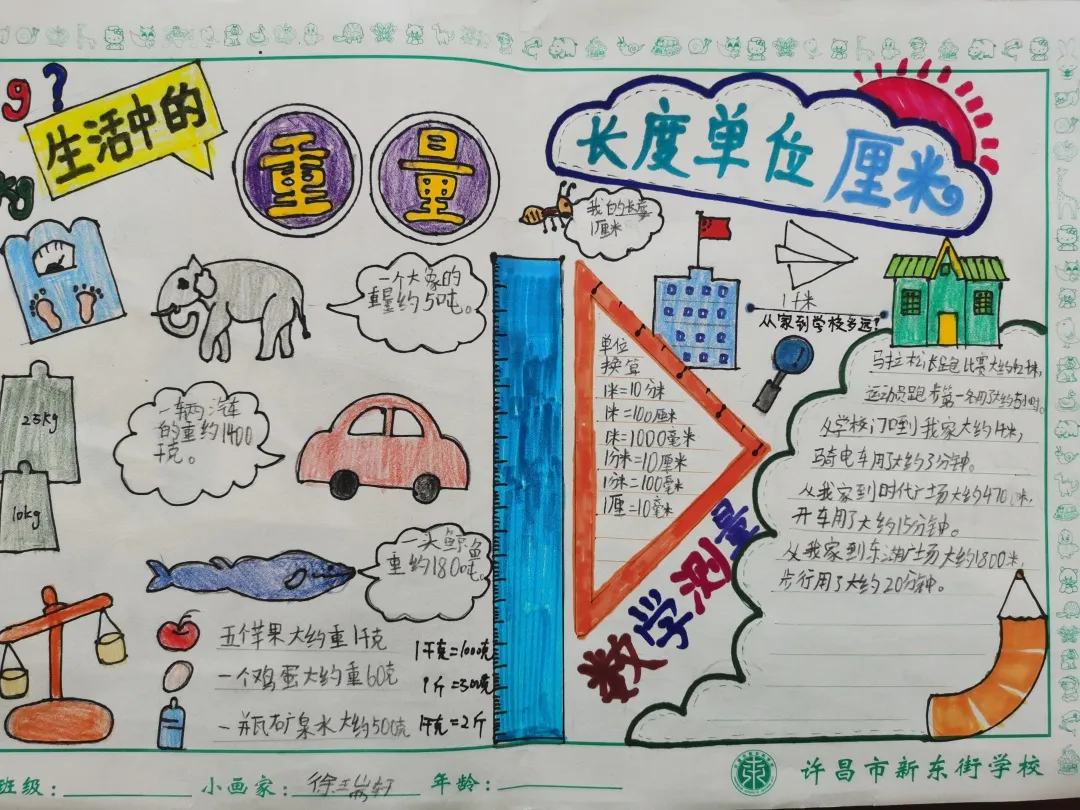 g?
kg
生活中的
重量
一个大象的
重量约5吨。
25kg
10kg
一辆汽车
的重约1400
千克。
一头鲸鱼
重约180吨
五个苹果大约重1千克
一个鸡蛋大约重60克
一瓶矿泉水大约500克
1千克=1000克
1斤=500克
1千克=2斤
长度单位 厘米
我的长度
1厘米
1千米
从家到学校多远?
单位
换算
1米=10分米
1米=100厘米
1米=1000毫米
1分米=10厘米
1分米=100毫米
1厘=10毫米
数学测量
马拉松长跑比赛大约42千米,
运动员跑步第一名用了大约5小时。
从学校门口到我家大约4米,
骑电车用了大约3分钟。
从我家到时代广场大约470米,
开车用了大约15分钟。
从我家到东湖广场大约1800米,
步行用了大约20分钟。
班级: 小画家: 徐 年龄:
许昌市新东街学校